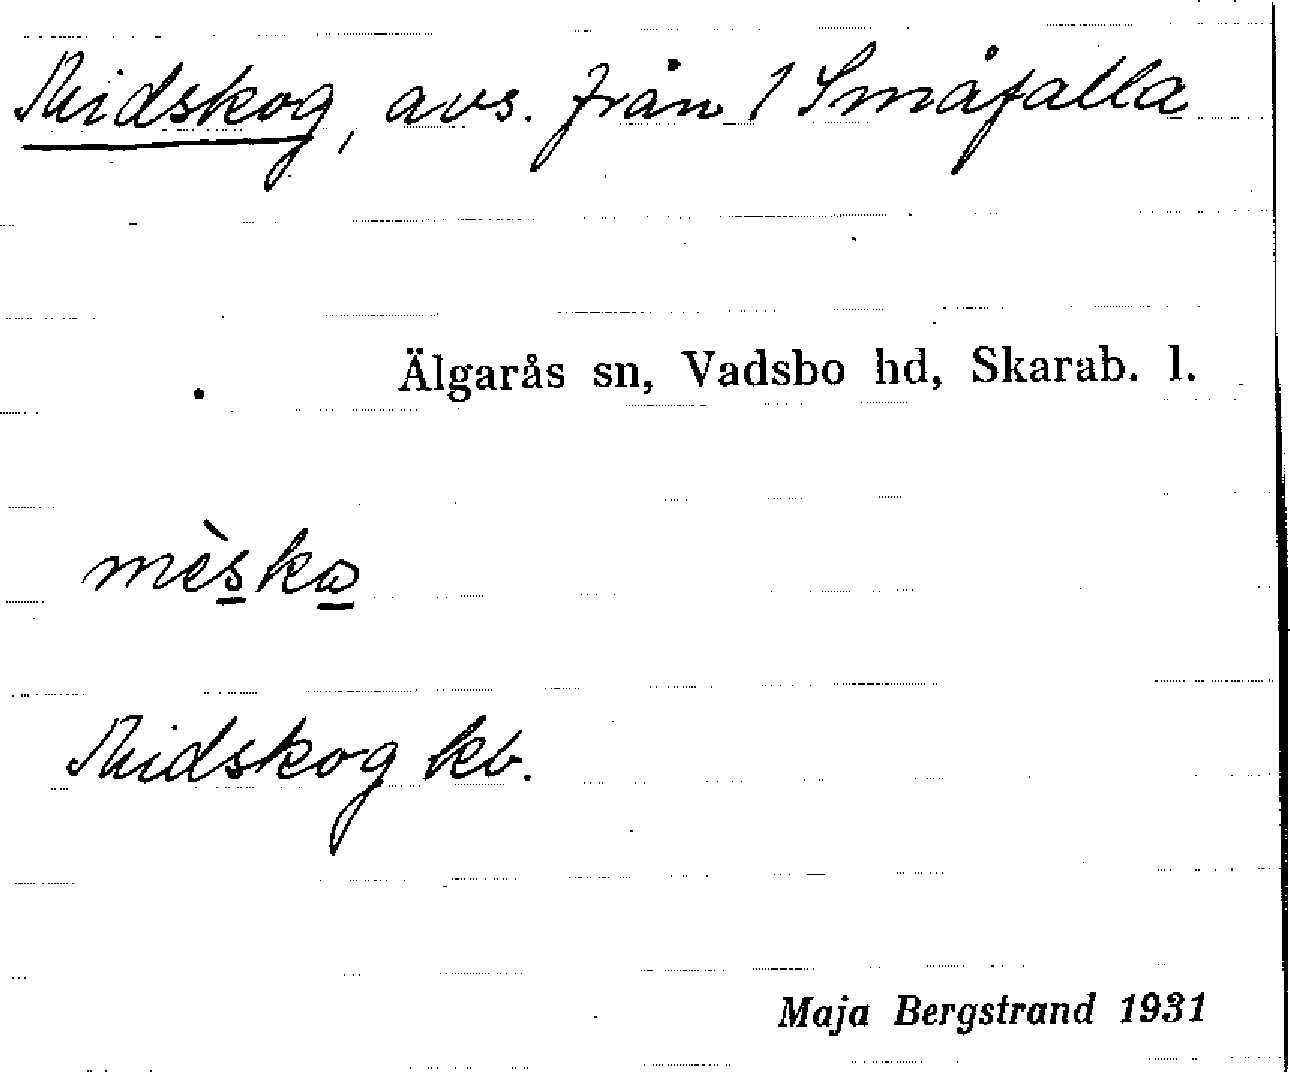 Midskog, avs. från 1 Småfalla
Älgarås sn, Vadsbo hd, Skarab. l.
mèskꙍ
Midskog kb.
Maja Bergstrand 1931